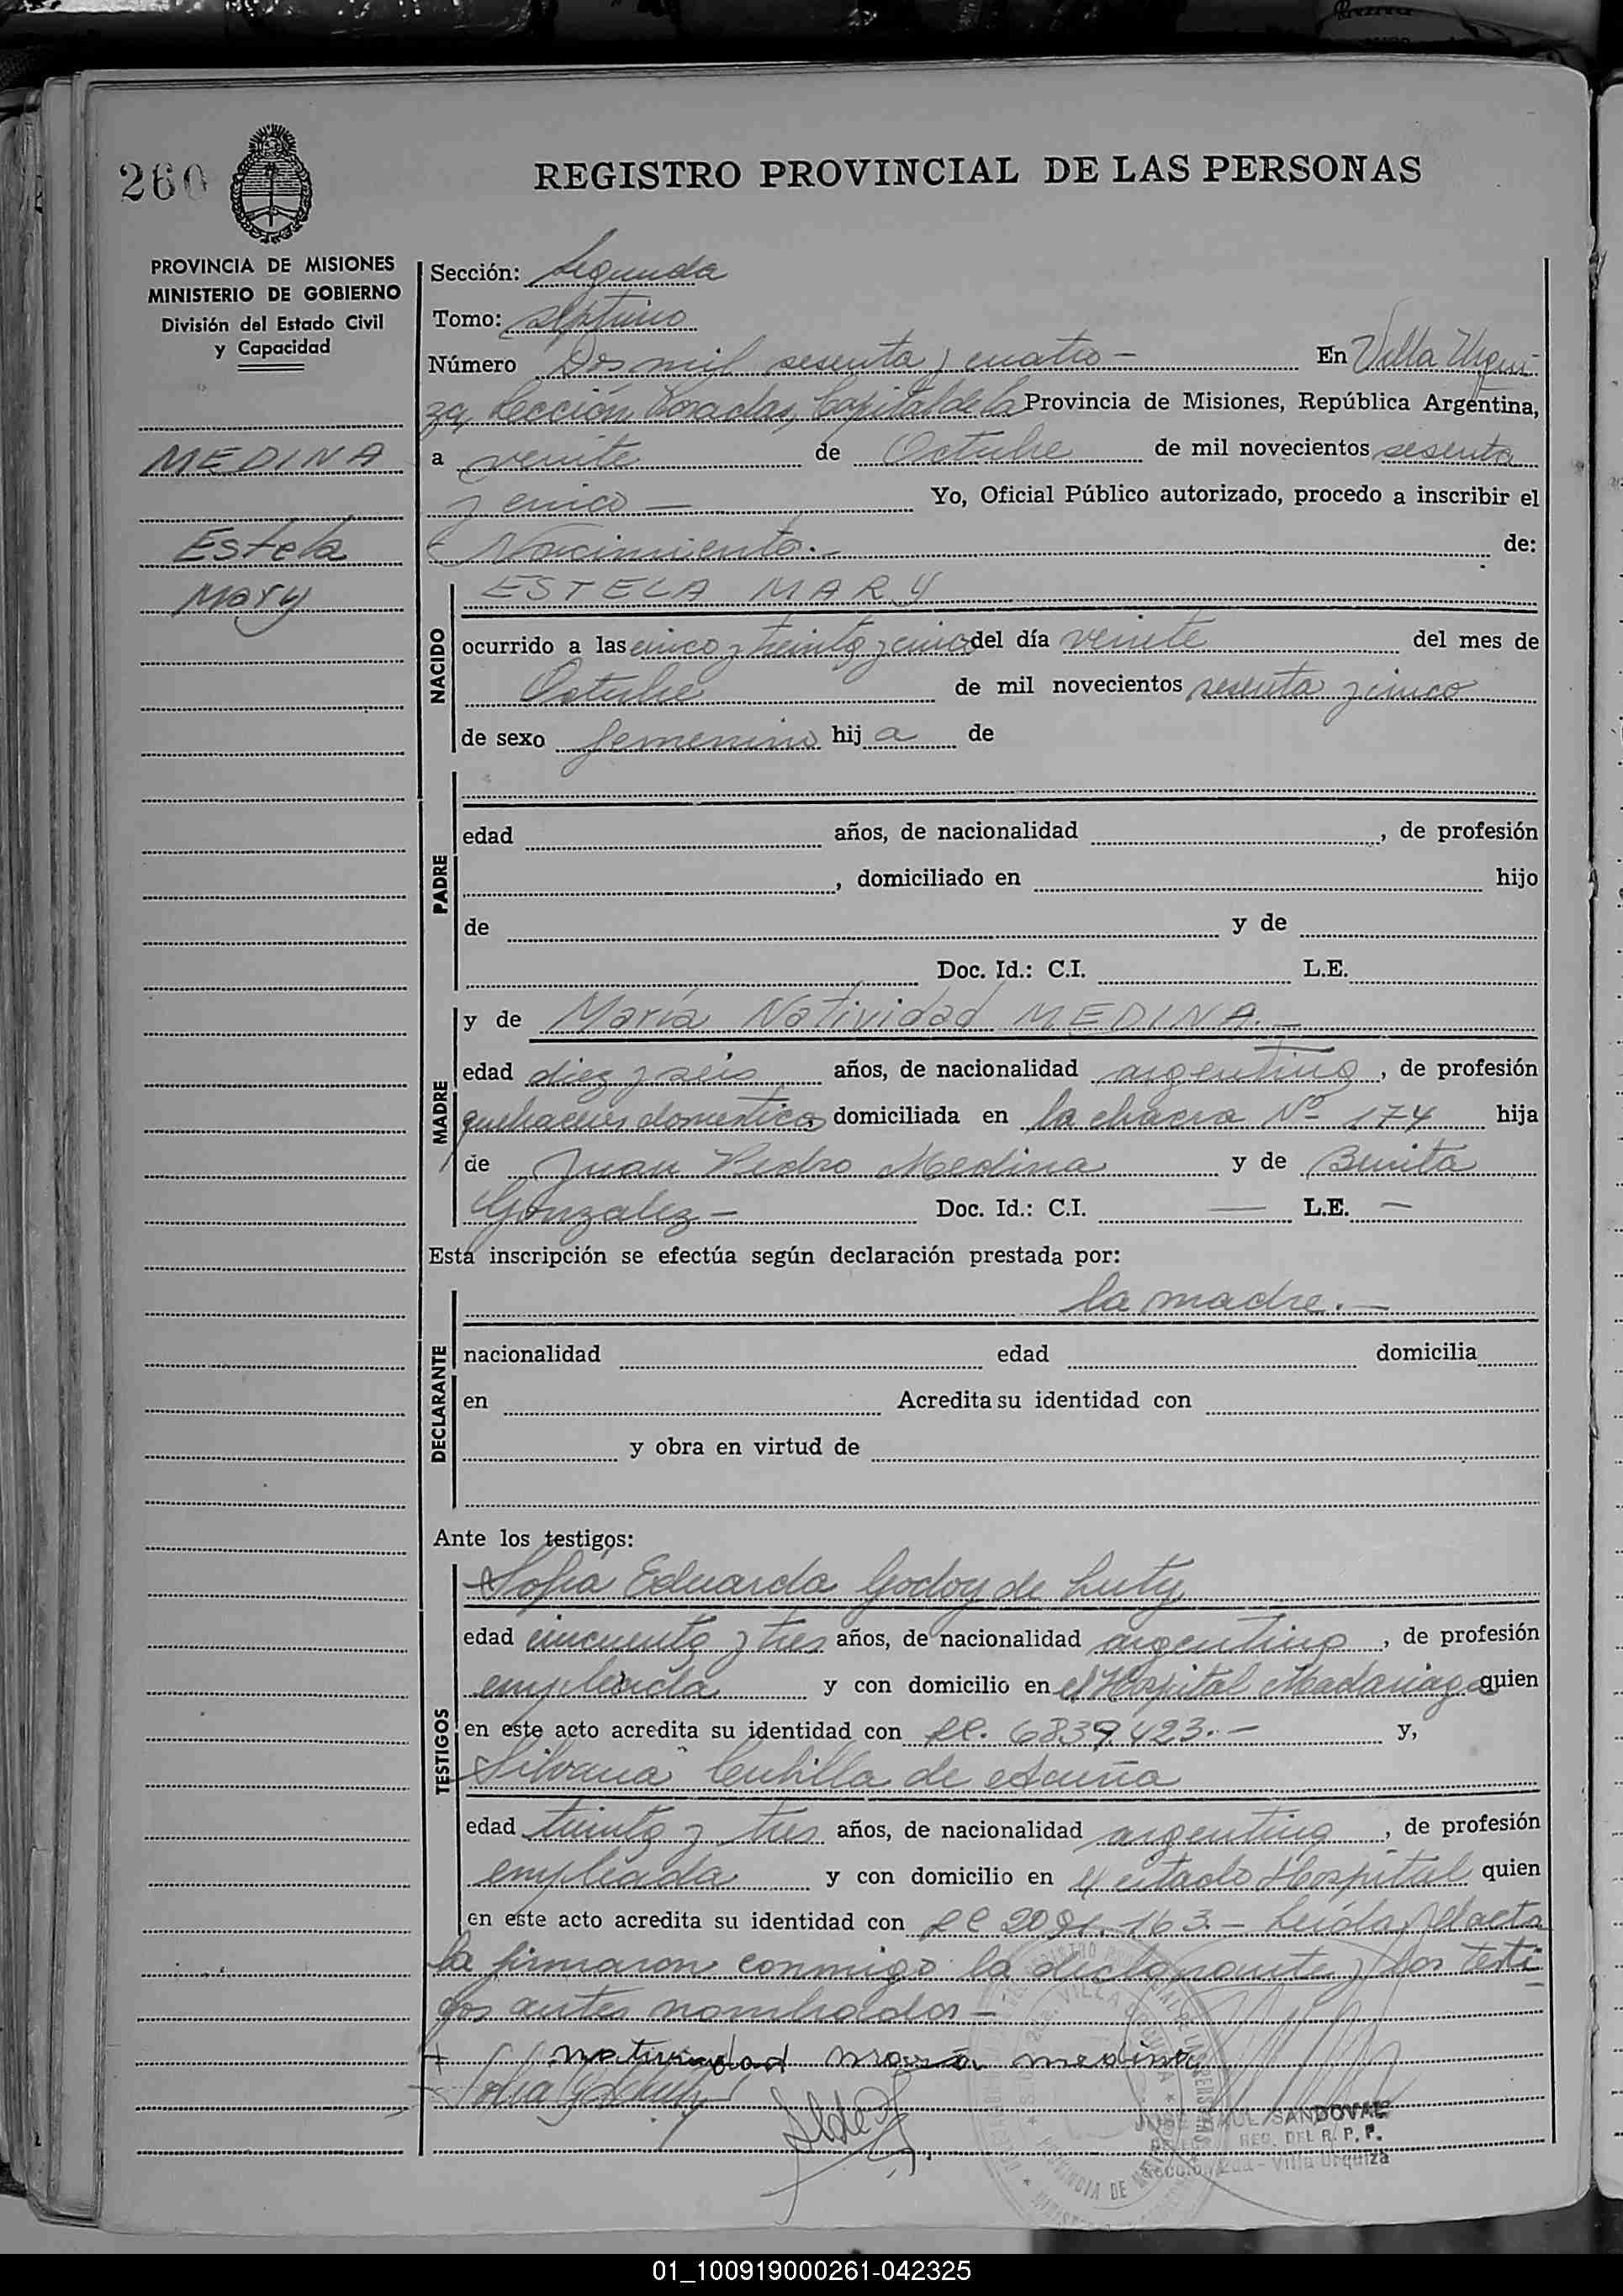 260
REGISTRO PROVINCIAL DE LAS PERSONAS
PROVINCIA DE MISIONES
MINISTERIO DE GOBIERNO
División del Estado Civil
y Capacidad
MEDINA
Estela
Mary
Sección: Segunda
Tomo: septimo
Número Dos mil sesenta y cuatro – En Villa Urqui-
za, Sección Posadas, Capital de la Provincia de Misiones, República Argentina,
a veinte de Octubre de mil novecientos sesenta
y cinco — Yo, Oficial Público autorizado, procedo a inscribir el
Nacimiento.- de:
NACIDO
ESTELA MARY
ocurrido a las cinco y treinta y cinco del día veinte del mes de
Octubre de mil novecientos sesenta y cinco
de sexo femenino hij a de
PADRE
edad años, de nacionalidad , de profesión
, domiciliado en hijo
de y de
Doc. Id.: C.I. L.E.
MADRE
y de María Natividad MEDINA.-
edad diez y seis años, de nacionalidad argentina, de profesión
quehaceres domesticos domiciliada en la chacra Nº 174 hija
de Juan Pedro Medina y de Benita
Gonzalez – Doc. Id.: C.I. — L.E. —
Esta inscripción se efectúa según declaración prestada por:
DECLARANTE
la madre.-
nacionalidad edad domicilia
en Acredita su identidad con
y obra en virtud de
Ante los testigos:
TESTIGOS
Sofia Eduarda Godoy de Luty
edad cincuenta y tres años, de nacionalidad argentina, de profesión
empleada y con domicilio en el Hospital Madariaga quien
en este acto acredita su identidad con LC. 6839.423.- y,
Silvana Cubilla de Acuña
edad treinta y tres años, de nacionalidad argentina, de profesión
empleada y con domicilio en el citado Hospital quien
en este acto acredita su identidad con LC 2091.163.- Leída el acta
la firmaron conmigo la declarante y los testi-
gos antes nombrados –
natividad maria medina
SANDOVAL
REG. DEL R. P. P.
Villa Urquiza
01_100919000261-042325